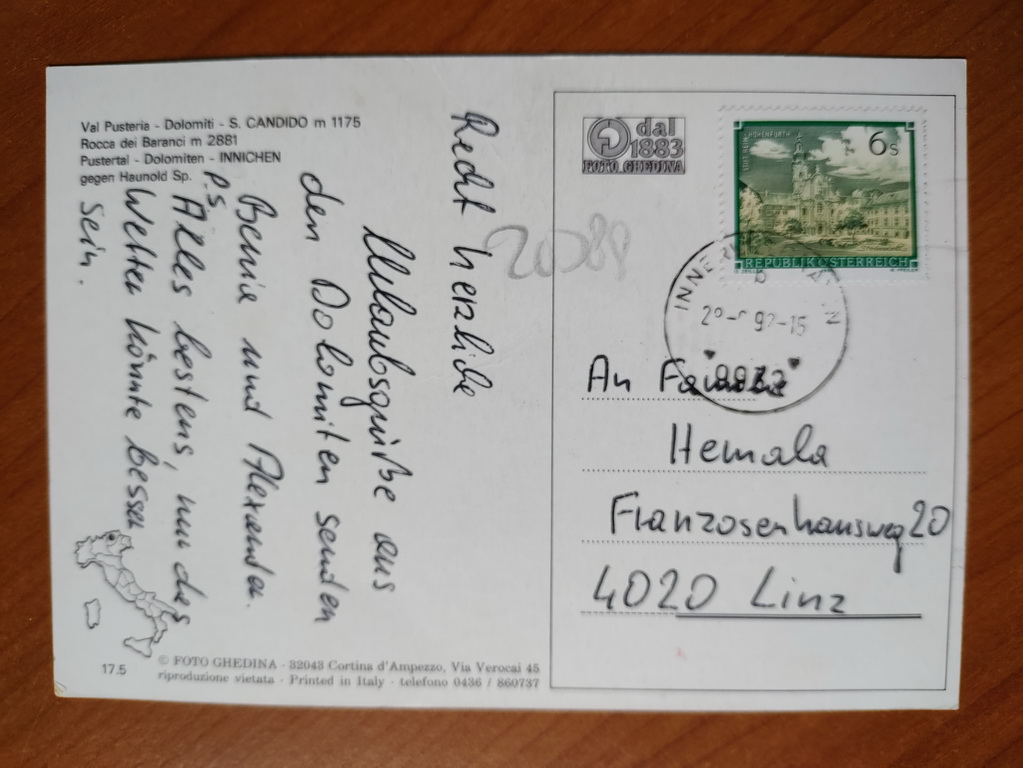 Val Pusteria - Dolomiti - S. CANDIDO m 1175
Rocca dei Baranci m 2881
Pustertal - Dolomiten - INNICHEN
gegen Haunold Sp.
Recht herzliche
Urlaubsgrüße aus
den Dolomiten senden
Bernie und Alexander.
P.S.
Alles bestens, nur das
Wetter könnte besser
sein.
dal
1883
FOTO GHEDINA
6s
REPUBLIK ÖSTERREICH
An Familie
Hemala
Franzosenhausweg 20
4020 Linz
17.5
© FOTO GHEDINA - 32043 Cortina d'Ampezzo, Via Verocai 45
riproduzione vietata - Printed in Italy - telefono 0436 / 860737